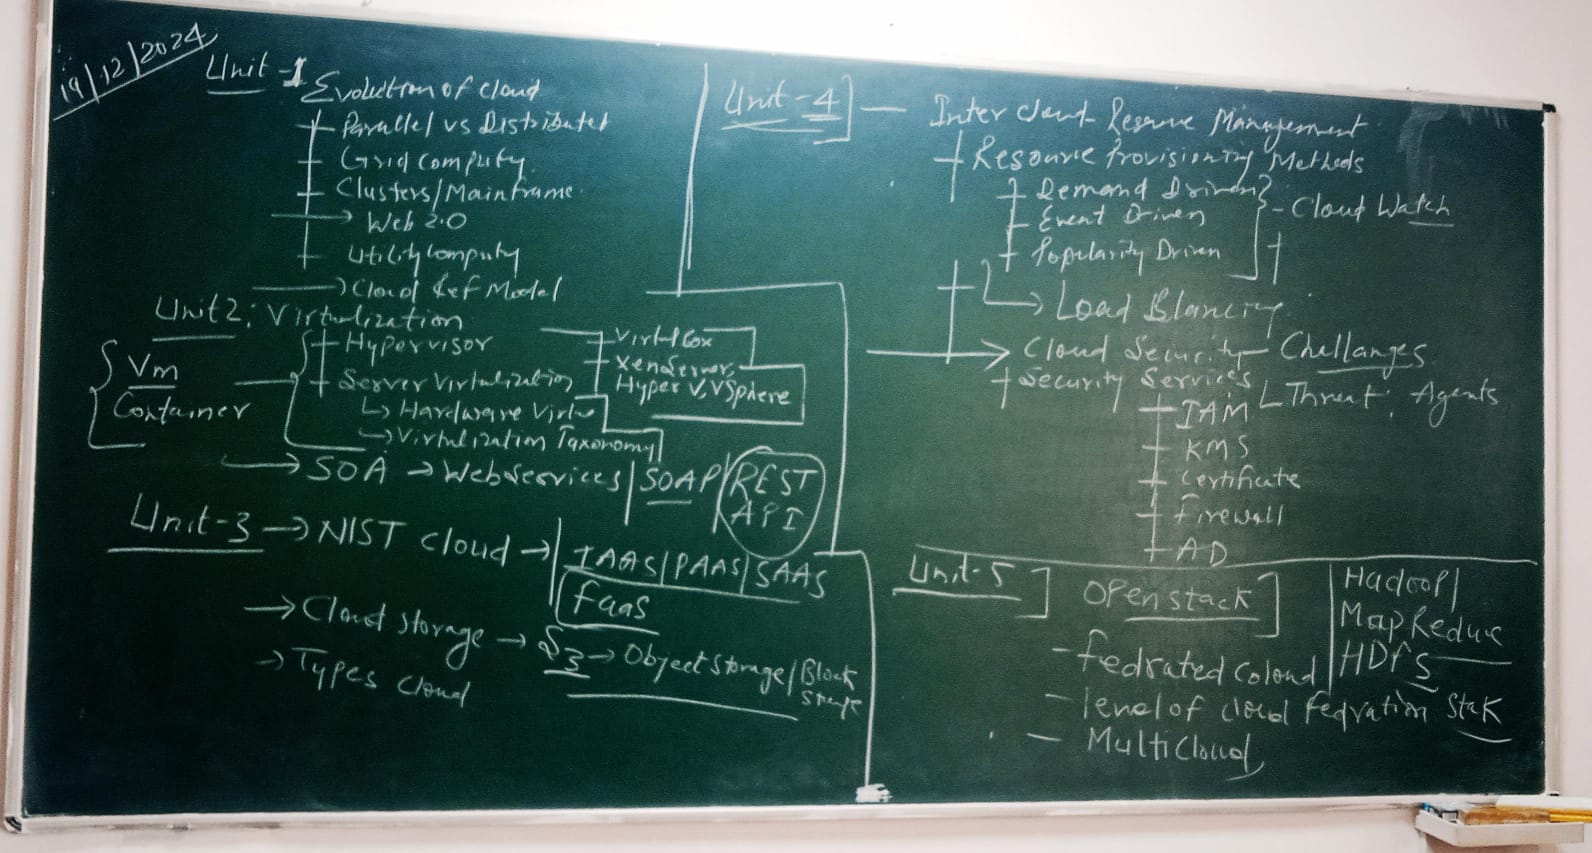 19/12/2024
Unit-1
Evolution of cloud
Parallel vs Distributed
Grid computing
Clusters/Mainframe
Web 2.0
Utility computing
Cloud Ref Model
Unit 2: Virtulization
Vm
Container
Hypervisor
Server Virtulization
Hardware Virtu
Virtulization Taxonomy
Virtul Box
XenServer,
Hyper V, VSphere
SOA → Webservices | SOAP | REST
API
Unit-3 → NIST cloud → IAAS | PAAS | SAAS
faas
→ Cloud Storage → S3 → Object Storage / Block
Storage
→ Types cloud
Unit-4 — Inter cloud Resource Management
Resource Provisioning Methods
Demand Driven
Event Driven
Popularity Driven
- Cloud Watch
→ Load Blancing
Cloud Security - Challanges
Security Services
Threat, Agents
IAM
KMS
Certificate
Firewall
AD
Unit-5
Openstack
- fedrated Coloud
- level of cloud Fedration Stak
- Multicloud
Hadoop/
MapReduce
HDFS